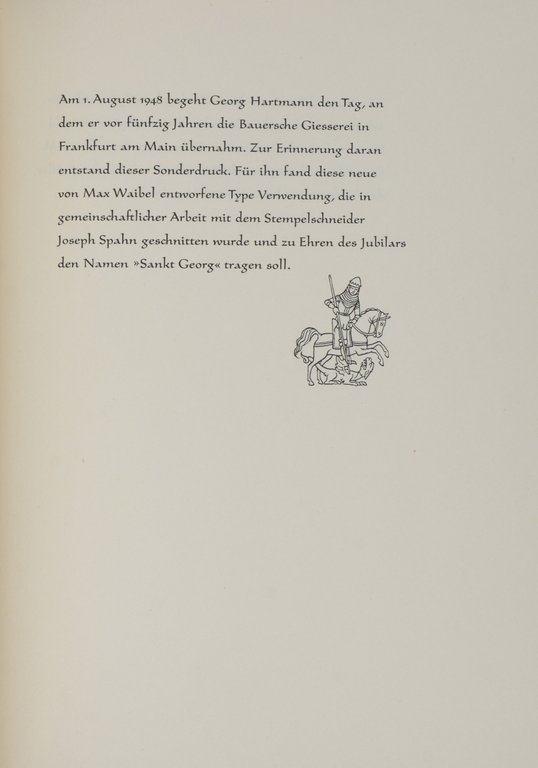 Am 1. August 1948 begeht Georg Hartmann den Tag, an
dem er vor fünfzig Jahren die Bauersche Giesserei in
Frankfurt am Main übernahm. Zur Erinnerung daran
entstand dieser Sonderdruck. Für ihn fand diese neue
von Max Waibel entworfene Type Verwendung, die in
gemeinschaftlicher Arbeit mit dem Stempelschneider
Joseph Spahn geschnitten wurde und zu Ehren des Jubilars
den Namen »Sankt Georg« tragen soll.